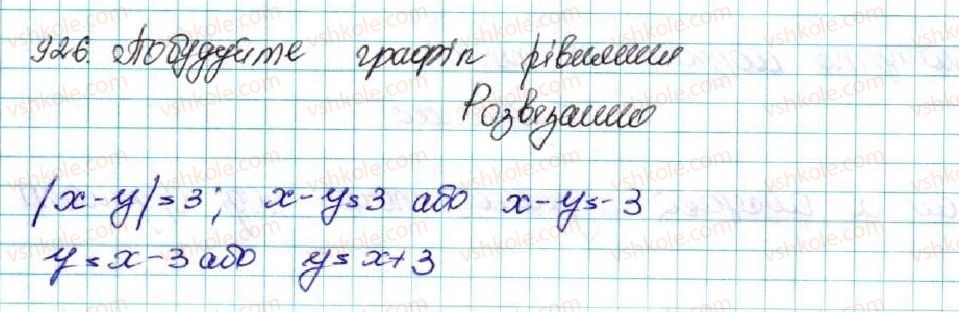 926. Побудуйте графік рівняння
Розвязання
|x-y|=3; x-y=3 або x-y=-3
y=x-3 або y=x+3